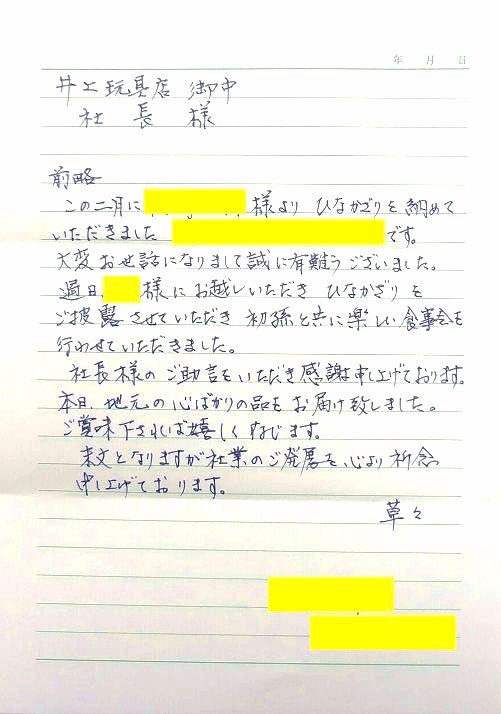 年 月 日
井上玩具店 御中
社長様
前略
この二月に 様より ひなかざりを納めて
いただきました です。
大変お世話になりまして誠に有難うございました。
過日、 様にお越しいただき ひなかざりを
ご披露させていただき 初孫と共に楽しい食事会を
行わせていただきました。
社長様のご助言をいただき感謝申し上げております。
本日、地元の心ばかりの品をお届け致しました。
ご賞味下されば嬉しくなじます。
末文となりますが社業のご発展を心より祈念
申し上げております。
草々